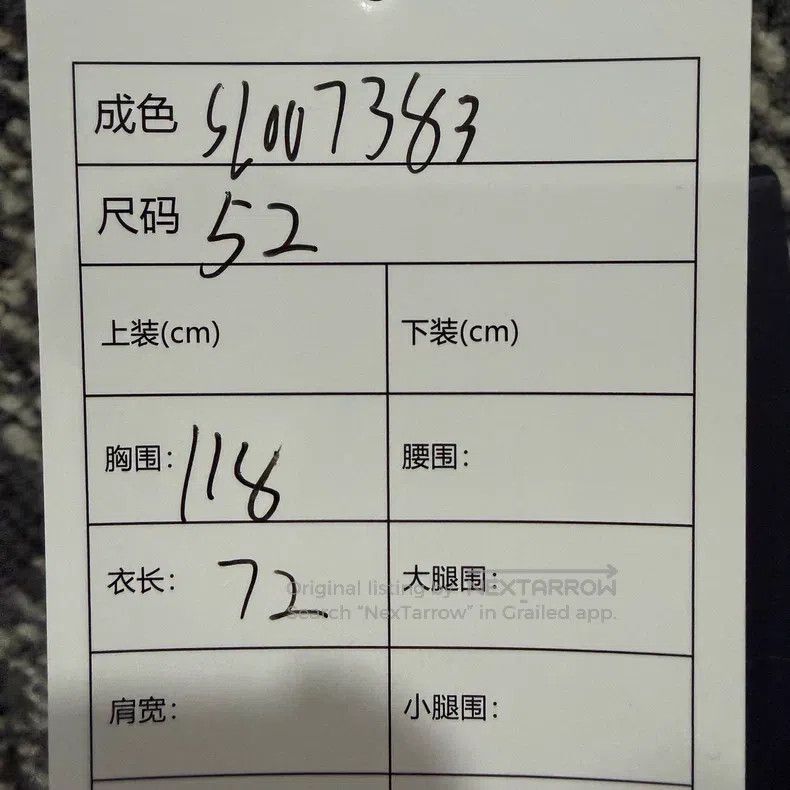 成色 SL007383
尺码 52
上装(cm) 下装(cm)
胸围: 118 腰围:
衣长: 72 大腿围:
Original listing by NEXTARROW
Search “NexTarrow” in Grailed app.
肩宽: 小腿围: